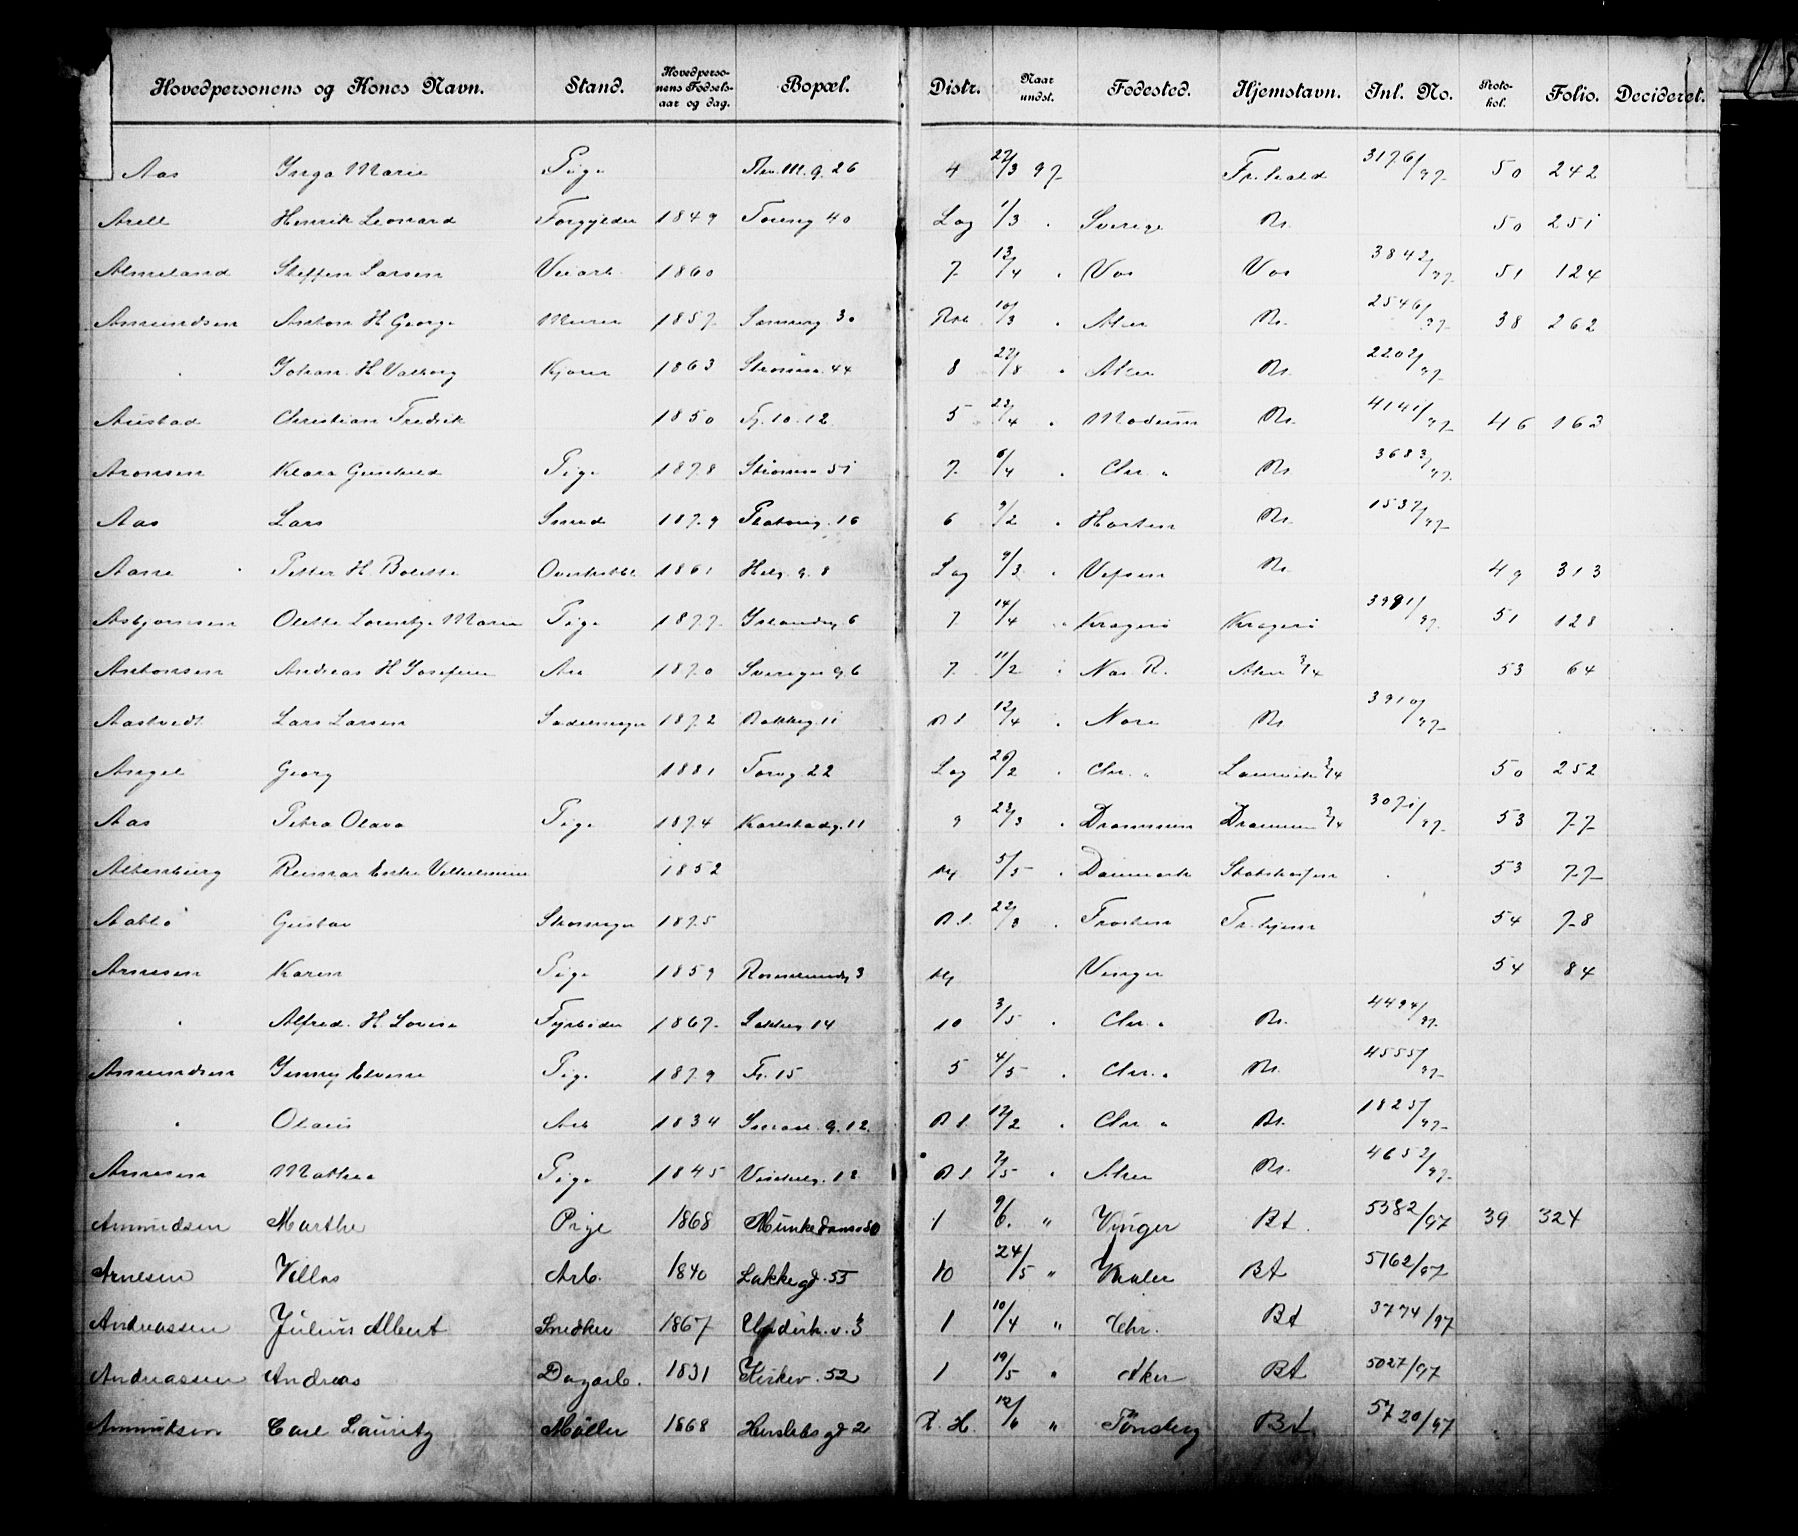 Hovedpersonens og Kones Navn. Stand. Hovedpersonens Fødselsaar og dag. Bopæl. Distr. Naar undst. Fødested. Hjemstavn. Inl. No. Protokol. Folio. Decideret.
Aas Inga Marie Pige 26 4 22/3 97 Fr.hald 3176/97 50 242
Arell Henrik Leonard Forgylder 1849 Torvg 40 Log 1/3 " Sverige Bt. 50 251
Almeland Steffen Larsen Veiarb. 1860 7 12/4 " Vos Vos 3842/97 51 124
Amundsen Anton H George Murer 1857 30 10/3 " Aker Bt. 2546/97 38 262
" Johan H Valborg Kjører 1863 Strømsv. 44 8 27/8 " Aker Bt. 2202/97
Austad Christian Fredrik 1850 12 5 23/4 " Modum Bt. 4141/97 46 163
Aronsen Klara Gunhild Pige 1878 Strømsv. 51 7 6/4 " Chr. " Bt. 3683/97
Aas Lars Smed 1879 16 6 9/2 " Horten Bt. 1537/97
Aane Petter H Bolette 1861 Helg. g. 8 Log 9/3 " Vefsen Bt. 49 313
Asbjørnsen Olette Lorentze Marie Pige 1877 6 7 14/4 " Kragerø Kragerø 3991/97 51 128
Antonsen Andreas H Josefine Arb 1870 Sverigesg. 6 7 11/2 " Nas R. Aker 3/4 53 64
Aastvedt Lars Larsen Sadelmager 1872 Bakkeg. 11 12/4 " Nore Bt. 3910/97
Angel Georg 1881 Torvg. 22 Log 26/2 " Chr. " Laurvik 3/4 50 252
Aas Petra Olava Pige 1874 Karlstadg. 11 9 23/3 " Drammen Drammen 3/4 3071/97 53 77
Altenburg Reimar 1852 5/5 " Danmark Statskassen 53 77
Aatlo Gustav Skomager 1875 22/3 " Frosten Tr.hjem 54 78
Arnesen Karen Pige 1859 Rosenlundg 3 Vinger 54 84
" Alfred. H Lovise Fyrbøder 1867 Lakkeg. 14 10 3/5 " Chr. " Bt. 4494/97
Amundsen Jenny Elvine Pige 1879 Fr. 15 5 4/5 " Chr. " Bt. 4555/97
" Olaus Arb 1834 g. 12 12/2 " Chr. " Bt. 1825/97
Arnesen Mathea Pige 1845 12 7/5 " Aker Bt. 4652/97
Amundsen Marthe Pige 1868 Munkedamsv 50 1 9/6. " Vinger Bt. 5382/97 39 324
Arnesen Arb. 1840 Lakkegd. 55 10 24/5 " Vaaler Bt 5162/97
Andreassen Julius Albert Snedker 1867 3 1 10/4 " Chr. Bt 3774/97
Andreassen Andreas Dagarb. 1831 Kirkev. 52 1 19/5 " Aker Bt 5027/97
Amundsen Carl Lauritz Møller 1868 Herslebsgd 2 R. H. 12/6 " Tønsberg Bt 5720/97